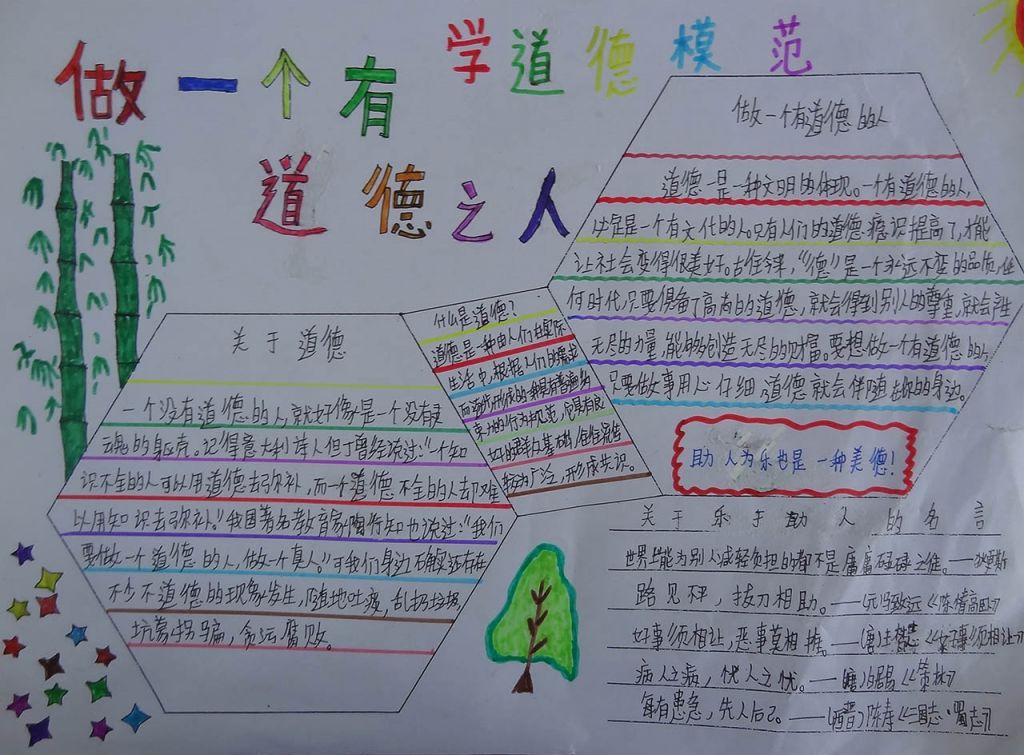 学道德模范
做一个有
道德之人
做一个有道德的人
道德是一种文明的体现。一个有道德的人,
必定是一个有文化的人。只有人们的道德意识提高了,才能
让社会变得很美好。古往今来,“德”是一个永远不变的品质,任
何时代,只要俱备了高尚的道德,就会得到别人的尊重,就会产生
无尽的力量,能够创造无尽的财富。要想做一个有道德的人
只要做事用心仔细,道德就会伴随在你的身边。
助人为乐也是一种美德!
什么是道德?
道德是一种由人们在实际
生活中,根据人们的需求
而逐步形成的一种具有普遍约
束力的行为规范,它具有良
好的群众基础,往往流传
较为广泛,形成共识。
关于道德
一个没有道德的人,就好像是一个没有灵
魂的身躯壳。记得意大利诗人但丁曾经说过:“个知
识不全的人可以用道德去弥补,而一个道德不全的人却难
以用知识去弥补。”我国著名教育家陶行知也说过:“我们
要做一个道德的人,做一个真人。”可我们身边确实还存在
不少不道德的现象发生,随地吐痰,乱扔垃圾,
坑蒙拐骗,贪污腐败。
关于乐于助人的名言
世界上能为别人减轻负担的都不是庸庸碌碌之徒。——狄更斯
路见不平,拔刀相助。——(元)马致远《陈情高卧》
好事须相让,恶事莫相推。——(唐)王梵志《好事须相让》
病人之病,忧人之忧。——(唐)白居易《策林》
每有患急,先人后己。——(西晋)陈寿《三国志·蜀志》